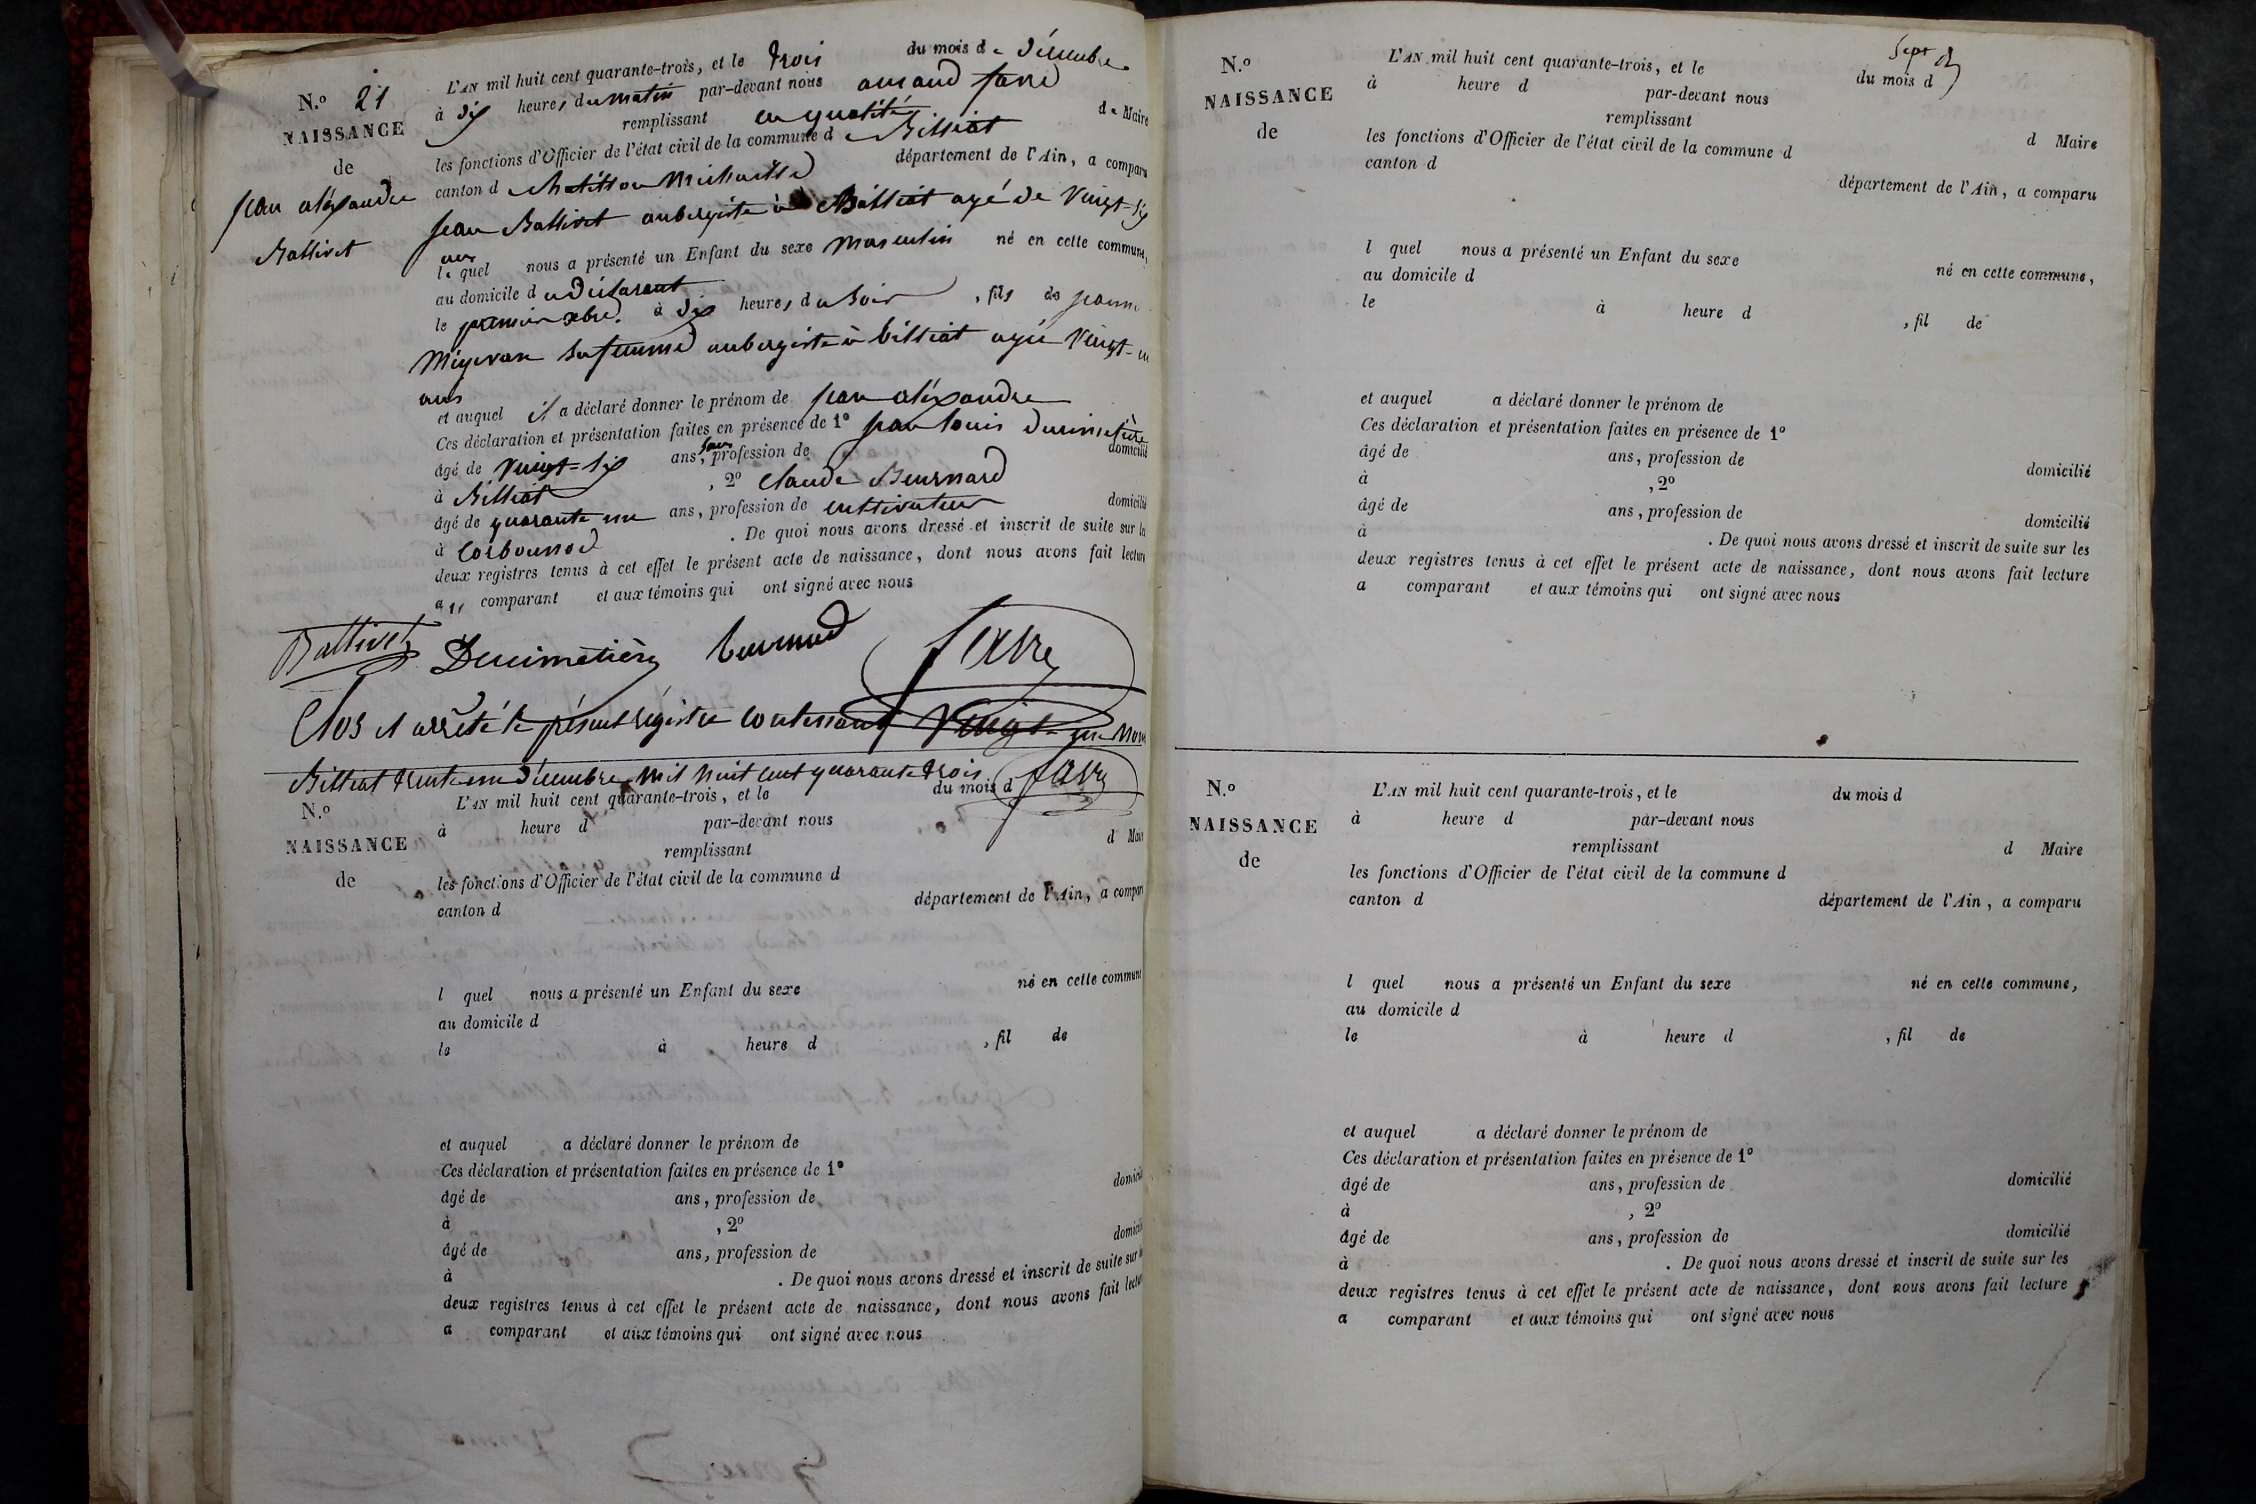 N.o 21
NAISSANCE
de
jean aléxandre
Ballivet
L'AN mil huit cent quarante-trois, et le trois du mois de décembre
à dix heures du matin par-devant nous amand favre
remplissant en qualité de Maire
les fonctions d'Officier de l'état civil de la commune de Billiat
canton de Chatillon Michaille département de l'Ain, a comparu
jean Ballivet aubergiste à Billiat agé de vingt-six
ans
lequel nous a présenté un Enfant du sexe masculin né en cette commune,
au domicile du déclarant
le premier xbre à dix heures du soir, fils de jeanne
sa femme aubergiste à billiat agée vingt-un
ans
et auquel il a déclaré donner le prénom de jean aléxandre
Ces déclaration et présentation faites en présence de 1o jean louis
âgé de vingt-six ans, profession de domicilié
à Billiat, 2o Claude
âgé de quarante un ans, profession de cultivateur domicilié
à Corbonod. De quoi nous avons dressé et inscrit de suite sur les
deux registres tenus à cet effet le présent acte de naissance, dont nous avons fait lecture
aux comparant et aux témoins qui ont signé avec nous
Ballivet Ducimetière favre
Clos et arrêté le présent régistre contenant vingt-un
Billiat trente un décembre mil huit cent quarante trois favre
N.o
NAISSANCE
de
L'AN mil huit cent quarante-trois, et le du mois d
à heure d par-devant nous
remplissant d Maire
les fonctions d'Officier de l'état civil de la commune d
canton d département de l'Ain, a comparu
l quel nous a présenté un Enfant du sexe né en cette commune
au domicile d
le à heure d , fil de
et auquel a déclaré donner le prénom de
Ces déclaration et présentation faites en présence de 1o
âgé de ans, profession de domicilié
à , 2o
âgé de ans, profession de domicilié
à . De quoi nous avons dressé et inscrit de suite sur les
deux registres tenus à cet effet le présent acte de naissance, dont nous avons fait lecture
a comparant et aux témoins qui ont signé avec nous
Sept
N.o
NAISSANCE
de
L'AN mil huit cent quarante-trois, et le du mois d
à heure d par-devant nous
remplissant d Maire
les fonctions d'Officier de l'état civil de la commune d
canton d département de l'Ain, a comparu
l quel nous a présenté un Enfant du sexe né en cette commune,
au domicile d
le à heure d , fil de
et auquel a déclaré donner le prénom de
Ces déclaration et présentation faites en présence de 1o
âgé de ans, profession de domicilié
à , 2o
âgé de ans, profession de domicilié
à . De quoi nous avons dressé et inscrit de suite sur les
deux registres tenus à cet effet le présent acte de naissance, dont nous avons fait lecture
a comparant et aux témoins qui ont signé avec nous
N.o
NAISSANCE
de
L'AN mil huit cent quarante-trois, et le du mois d
à heure d par-devant nous
remplissant d Maire
les fonctions d'Officier de l'état civil de la commune d
canton d département de l'Ain, a comparu
l quel nous a présenté un Enfant du sexe né en cette commune,
au domicile d
le à heure d , fil de
et auquel a déclaré donner le prénom de
Ces déclaration et présentation faites en présence de 1o
âgé de ans, profession de domicilié
à , 2o
âgé de ans, profession de domicilié
à . De quoi nous avons dressé et inscrit de suite sur les
deux registres tenus à cet effet le présent acte de naissance, dont nous avons fait lecture
a comparant et aux témoins qui ont signé avec nous